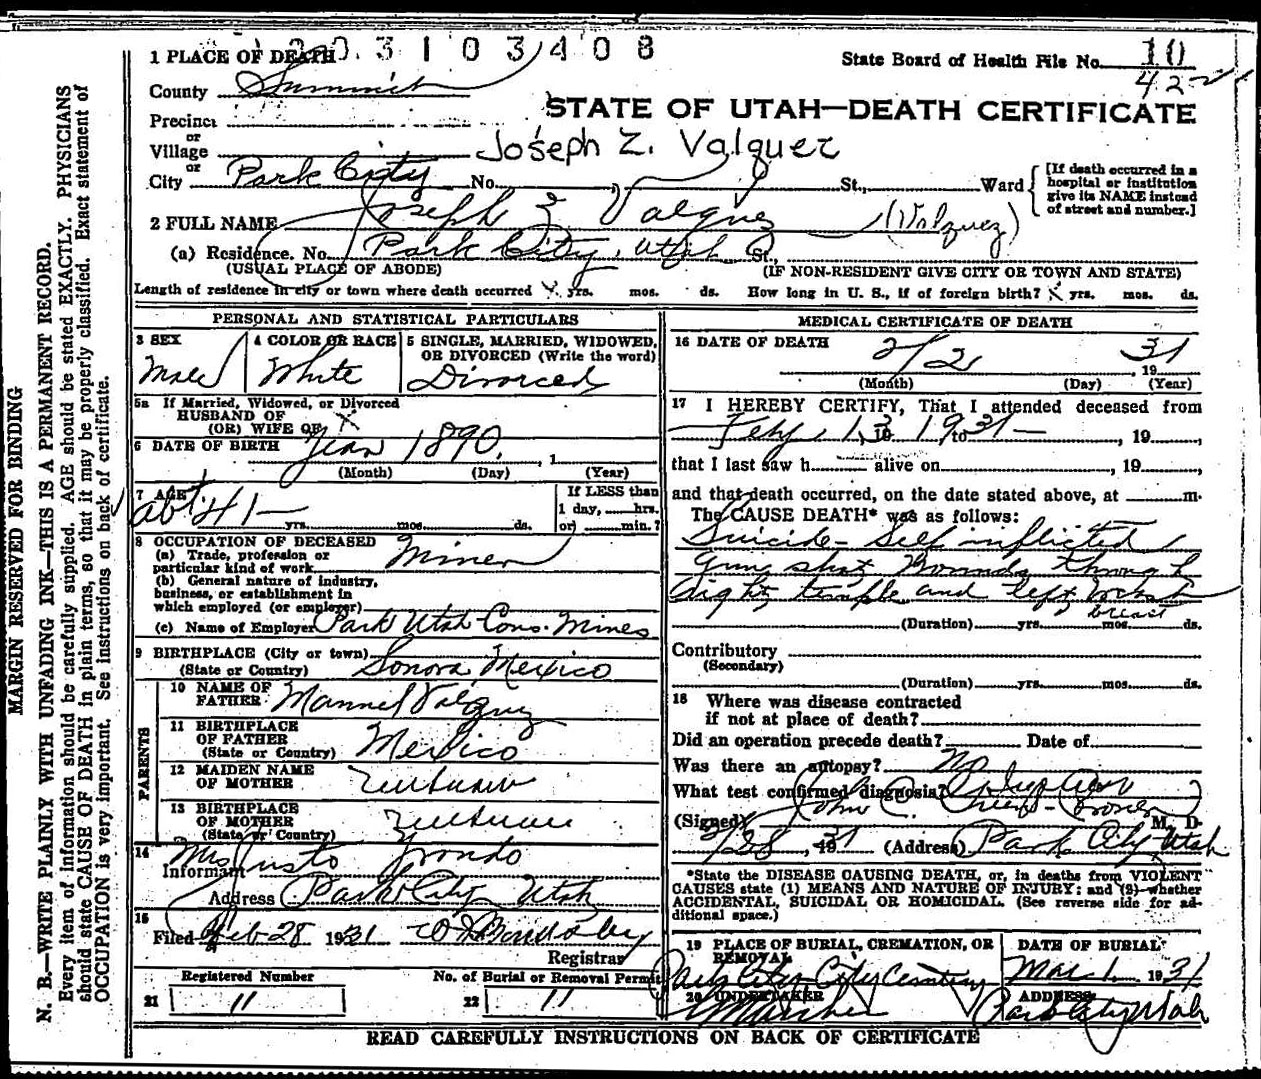 203103408
1 PLACE OF DEATH
State Board of Health File No. 10
42
County Summit
STATE OF UTAH—DEATH CERTIFICATE
Precinct
or
Village
Joseph Z. Valquez
or
City Park City No. St., Ward
[If death occurred in a hospital or institution give its NAME instead of street and number.]
2 FULL NAME Joseph Z Valquez (Valquez)
(a) Residence. No. Park City, Utah St.,
(USUAL PLACE OF ABODE) (IF NON-RESIDENT GIVE CITY OR TOWN AND STATE)
Length of residence in city or town where death occurred yrs. mos. ds. How long in U. S., if of foreign birth? X yrs. mos. ds.
PERSONAL AND STATISTICAL PARTICULARS
3 SEX Male
4 COLOR OR RACE White
5 SINGLE, MARRIED, WIDOWED, OR DIVORCED (Write the word) Divorced
5a If Married, Widowed, or Divorced
HUSBAND OF X
(OR) WIFE OF
6 DATE OF BIRTH Year 1890, 1
(Month) (Day) (Year)
7 AGE abt 41 —
yrs. mos. ds.
If LESS than
1 day, hrs.
or min.?
8 OCCUPATION OF DECEASED
(a) Trade, profession or
particular kind of work Miner
(b) General nature of industry,
business, or establishment in
which employed (or employer)
(c) Name of Employer Park Utah Cons. Mines
9 BIRTHPLACE (City or town)
(State or Country) Sonora Mexico
PARENTS
10 NAME OF
FATHER Manuel Valquez
11 BIRTHPLACE
OF FATHER
(State or Country) Mexico
12 MAIDEN NAME
OF MOTHER
13 BIRTHPLACE
OF MOTHER
(State or Country)
14
Informant Mrs Justo
Address Park City Utah
15
Filed Feb 28 1931
Registrar
Registered Number
21 11
No. of Burial or Removal Permit
22 11
MEDICAL CERTIFICATE OF DEATH
16 DATE OF DEATH 2/2 , 19 31
(Month) (Day) (Year)
17 I HEREBY CERTIFY, That I attended deceased from
19 to 31 — , 19 ,
that I last saw h alive on , 19 ,
and that death occurred, on the date stated above, at m.
The CAUSE DEATH* was as follows:
Suicide — Self inflicted
Gun shot Wounds through
right temple and left
breast
(Duration) yrs. mos. ds.
Contributory
(Secondary)
(Duration) yrs. mos. ds.
18 Where was disease contracted
if not at place of death?
Did an operation precede death? Date of
Was there an autopsy? No
What test confirmed diagnosis?
(Signed) John C. Coroner M. D.
2/28, 19 31 (Address) Park City Utah
*State the DISEASE CAUSING DEATH, or, in deaths from VIOLENT
CAUSES state (1) MEANS AND NATURE OF INJURY: and (2) whether
ACCIDENTAL, SUICIDAL OR HOMICIDAL. (See reverse side for ad-
ditional space.)
19 PLACE OF BURIAL, CREMATION, OR
REMOVAL
Park City City Cemetery
DATE OF BURIAL
Mar 1 1931
20 UNDERTAKER
ADDRESS
Park City Utah
READ CAREFULLY INSTRUCTIONS ON BACK OF CERTIFICATE
MARGIN RESERVED FOR BINDING
N. B.—WRITE PLAINLY WITH UNFADING INK—THIS IS A PERMANENT RECORD.
Every item of information should be carefully supplied. AGE should be stated EXACTLY. PHYSICIANS
should state CAUSE OF DEATH in plain terms, so that it may be properly classified. Exact statement of
OCCUPATION is very important. See instructions on back of certificate.